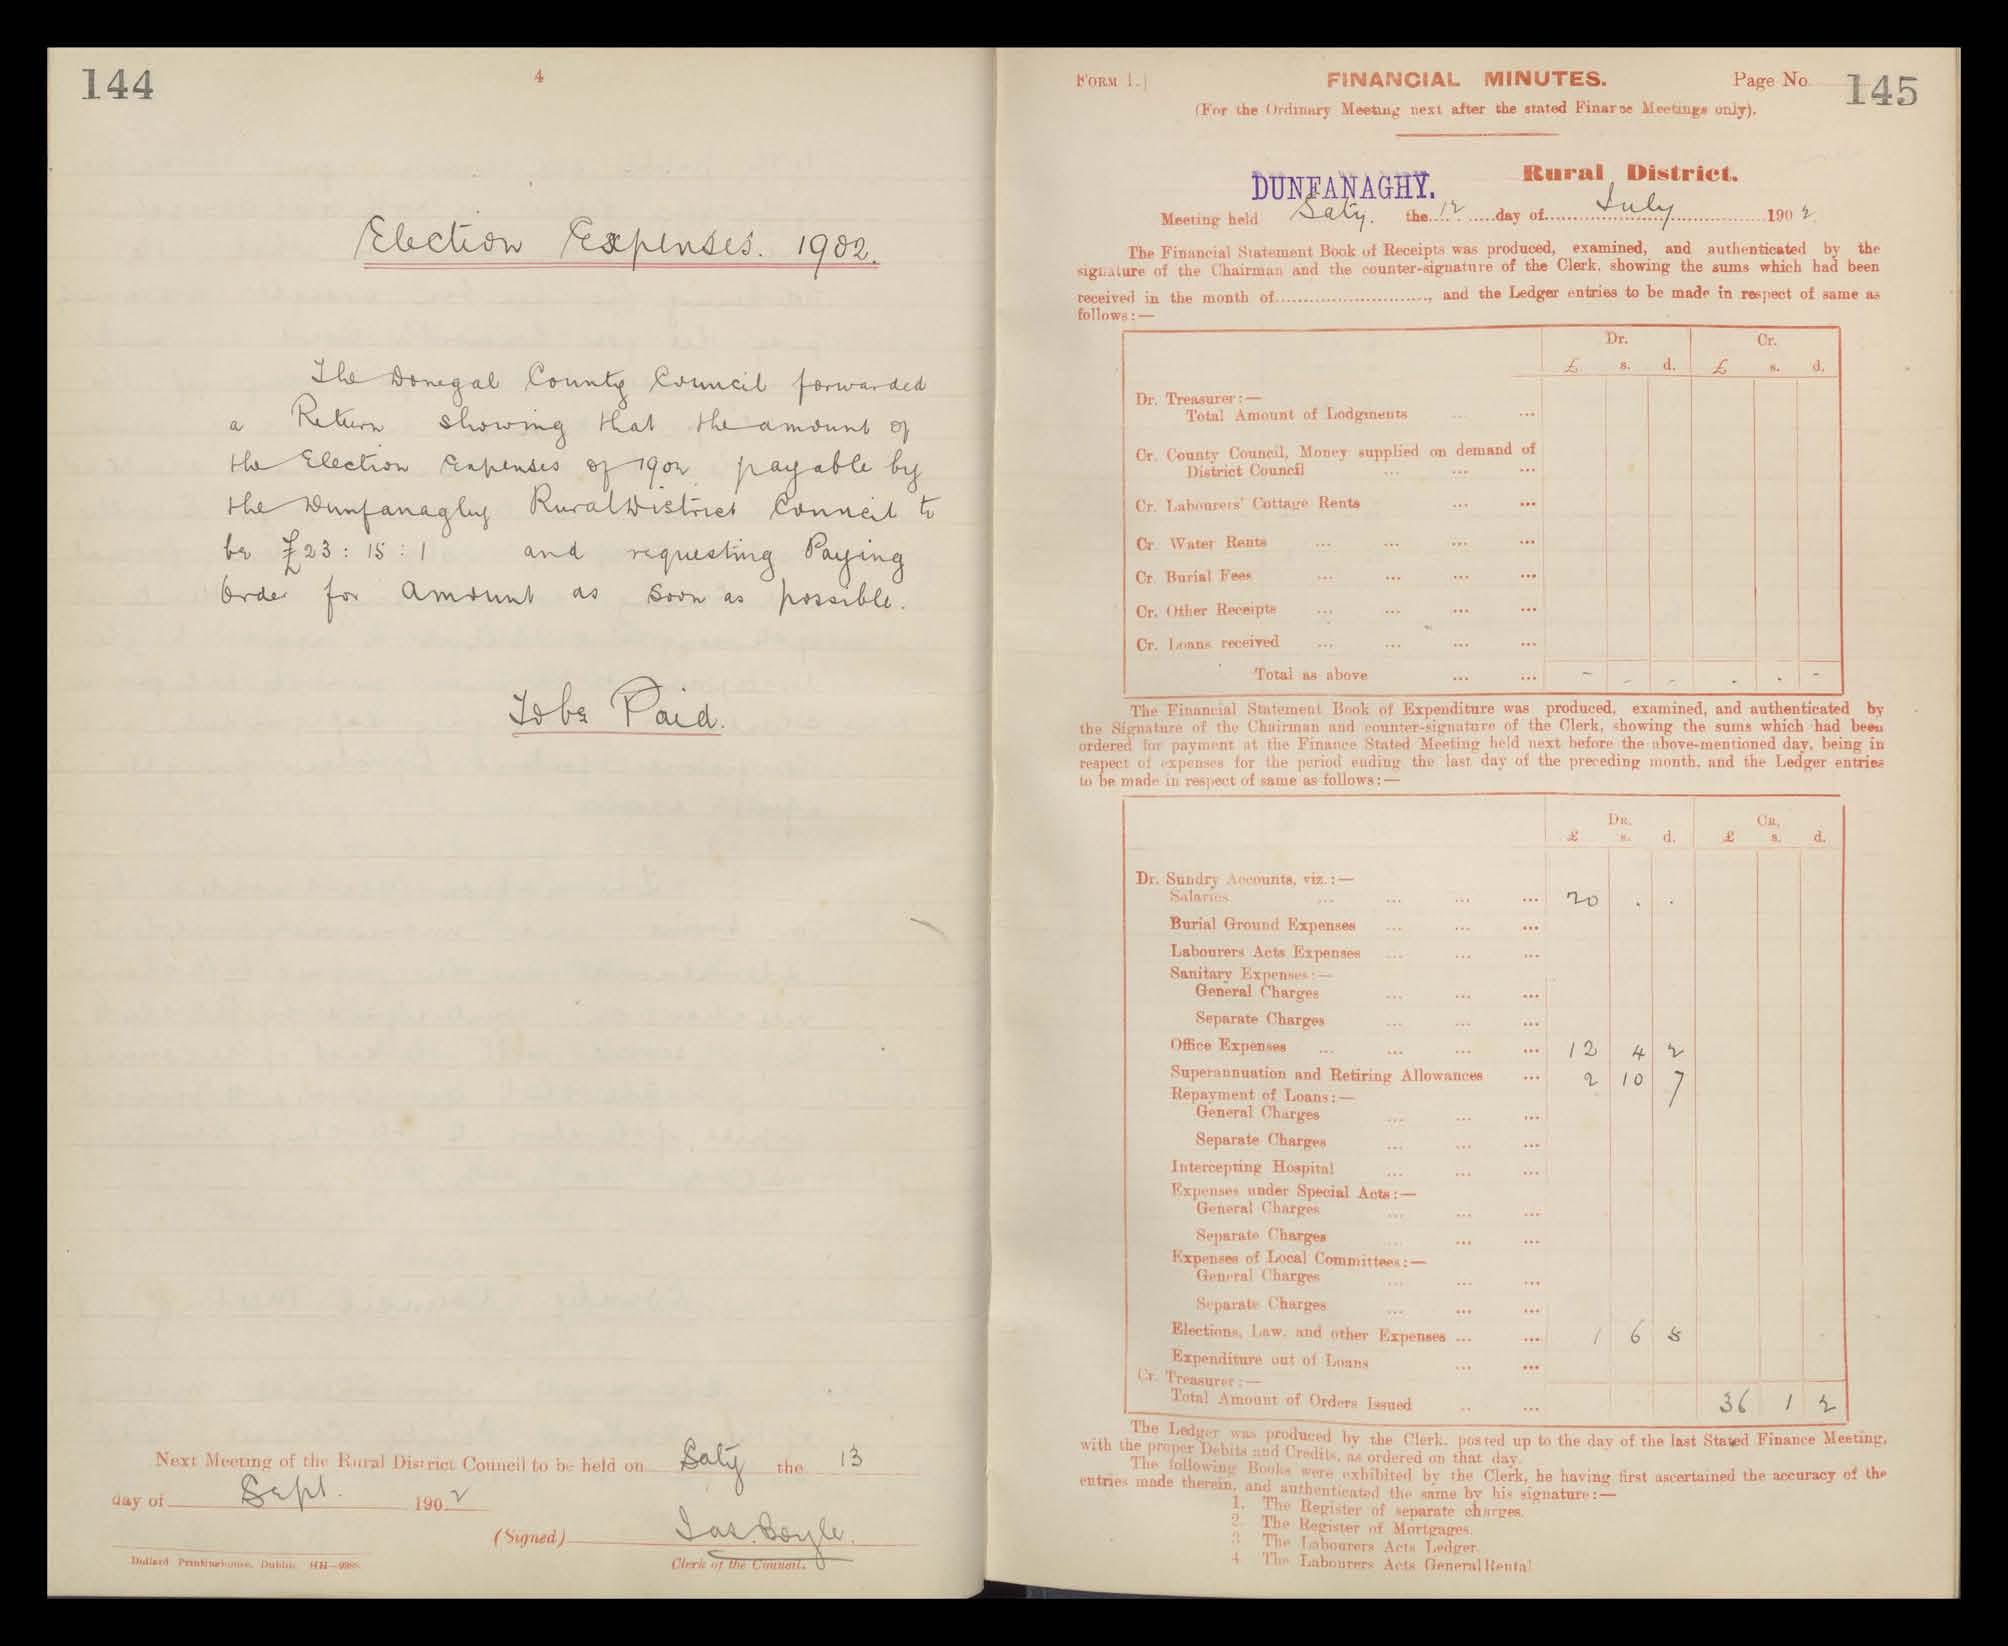 144
4
Election Expenses. 1902.
The Donegal County Council forwarded
a Return showing that the amount of
the Election Expenses of 1902 payable by
the Dunfanaghy Rural District Council to
be £23 : 15 : 1 and requesting Paying
Order for Amount as soon as possible.
To be Paid.
Next Meeting of the Rural District Council to be held on Saty the 13
day of Sept. 1902
(Signed) Jas. Boyle.
Clerk of the Council.
Dollard Printinghouse, Dublin.
FORM 1.]
FINANCIAL MINUTES.
Page No. 145
(For the Ordinary Meeting next after the stated Finance Meetings only).
DUNFANAGHY. Rural District.
Meeting held Saty. the 12 day of July 1902
The Financial Statement Book of Receipts was produced, examined, and authenticated by the
signature of the Chairman and the counter-signature of the Clerk, showing the sums which had been
received in the month of............................, and the Ledger entries to be made in respect of same as
follows:—
Dr. Cr.
£ s. d. £ s. d.
Dr. Treasurer:—
Total Amount of Lodgments ... ...
Cr. County Council, Money supplied on demand of
District Council ... ... ...
Cr. Labourers' Cottage Rents ... ...
Cr. Water Rents ... ... ... ...
Cr. Burial Fees ... ... ... ...
Cr. Other Receipts ... ... ... ...
Cr. Loans received ... ... ... ...
Total as above ... ... - - - . . -
The Financial Statement Book of Expenditure was produced, examined, and authenticated by
the Signature of the Chairman and counter-signature of the Clerk, showing the sums which had been
ordered for payment at the Finance Stated Meeting held next before the above-mentioned day, being in
respect of expenses for the period ending the last day of the preceding month, and the Ledger entries
to be made in respect of same as follows:—
DR. CR.
£ s. d. £ s. d.
Dr. Sundry Accounts, viz.:—
Salaries ... ... ... ... 20 . .
Burial Ground Expenses ... ... ...
Labourers Acts Expenses ... ... ...
Sanitary Expenses:—
General Charges ... ... ...
Separate Charges ... ... ...
Office Expenses ... ... ... ... 12 4 2
Superannuation and Retiring Allowances ... 2 10 7
Repayment of Loans:—
General Charges ... ... ...
Separate Charges ... ... ...
Intercepting Hospital ... ... ...
Expenses under Special Acts:—
General Charges ... ... ...
Separate Charges ... ... ...
Expenses of Local Committees:—
General Charges ... ... ...
Separate Charges ... ... ...
Elections, Law, and other Expenses ... ... 1 6 5
Expenditure out of Loans ... ...
Cr. Treasurer:—
Total Amount of Orders Issued .. ... 36 1 2
The Ledger was produced by the Clerk, posted up to the day of the last Stated Finance Meeting,
with the proper Debits and Credits, as ordered on that day.
The following Books were exhibited by the Clerk, he having first ascertained the accuracy of the
entries made therein, and authenticated the same by his signature:—
1. The Register of separate charges.
2. The Register of Mortgages.
3. The Labourers Acts Ledger.
4. The Labourers Acts General Rental